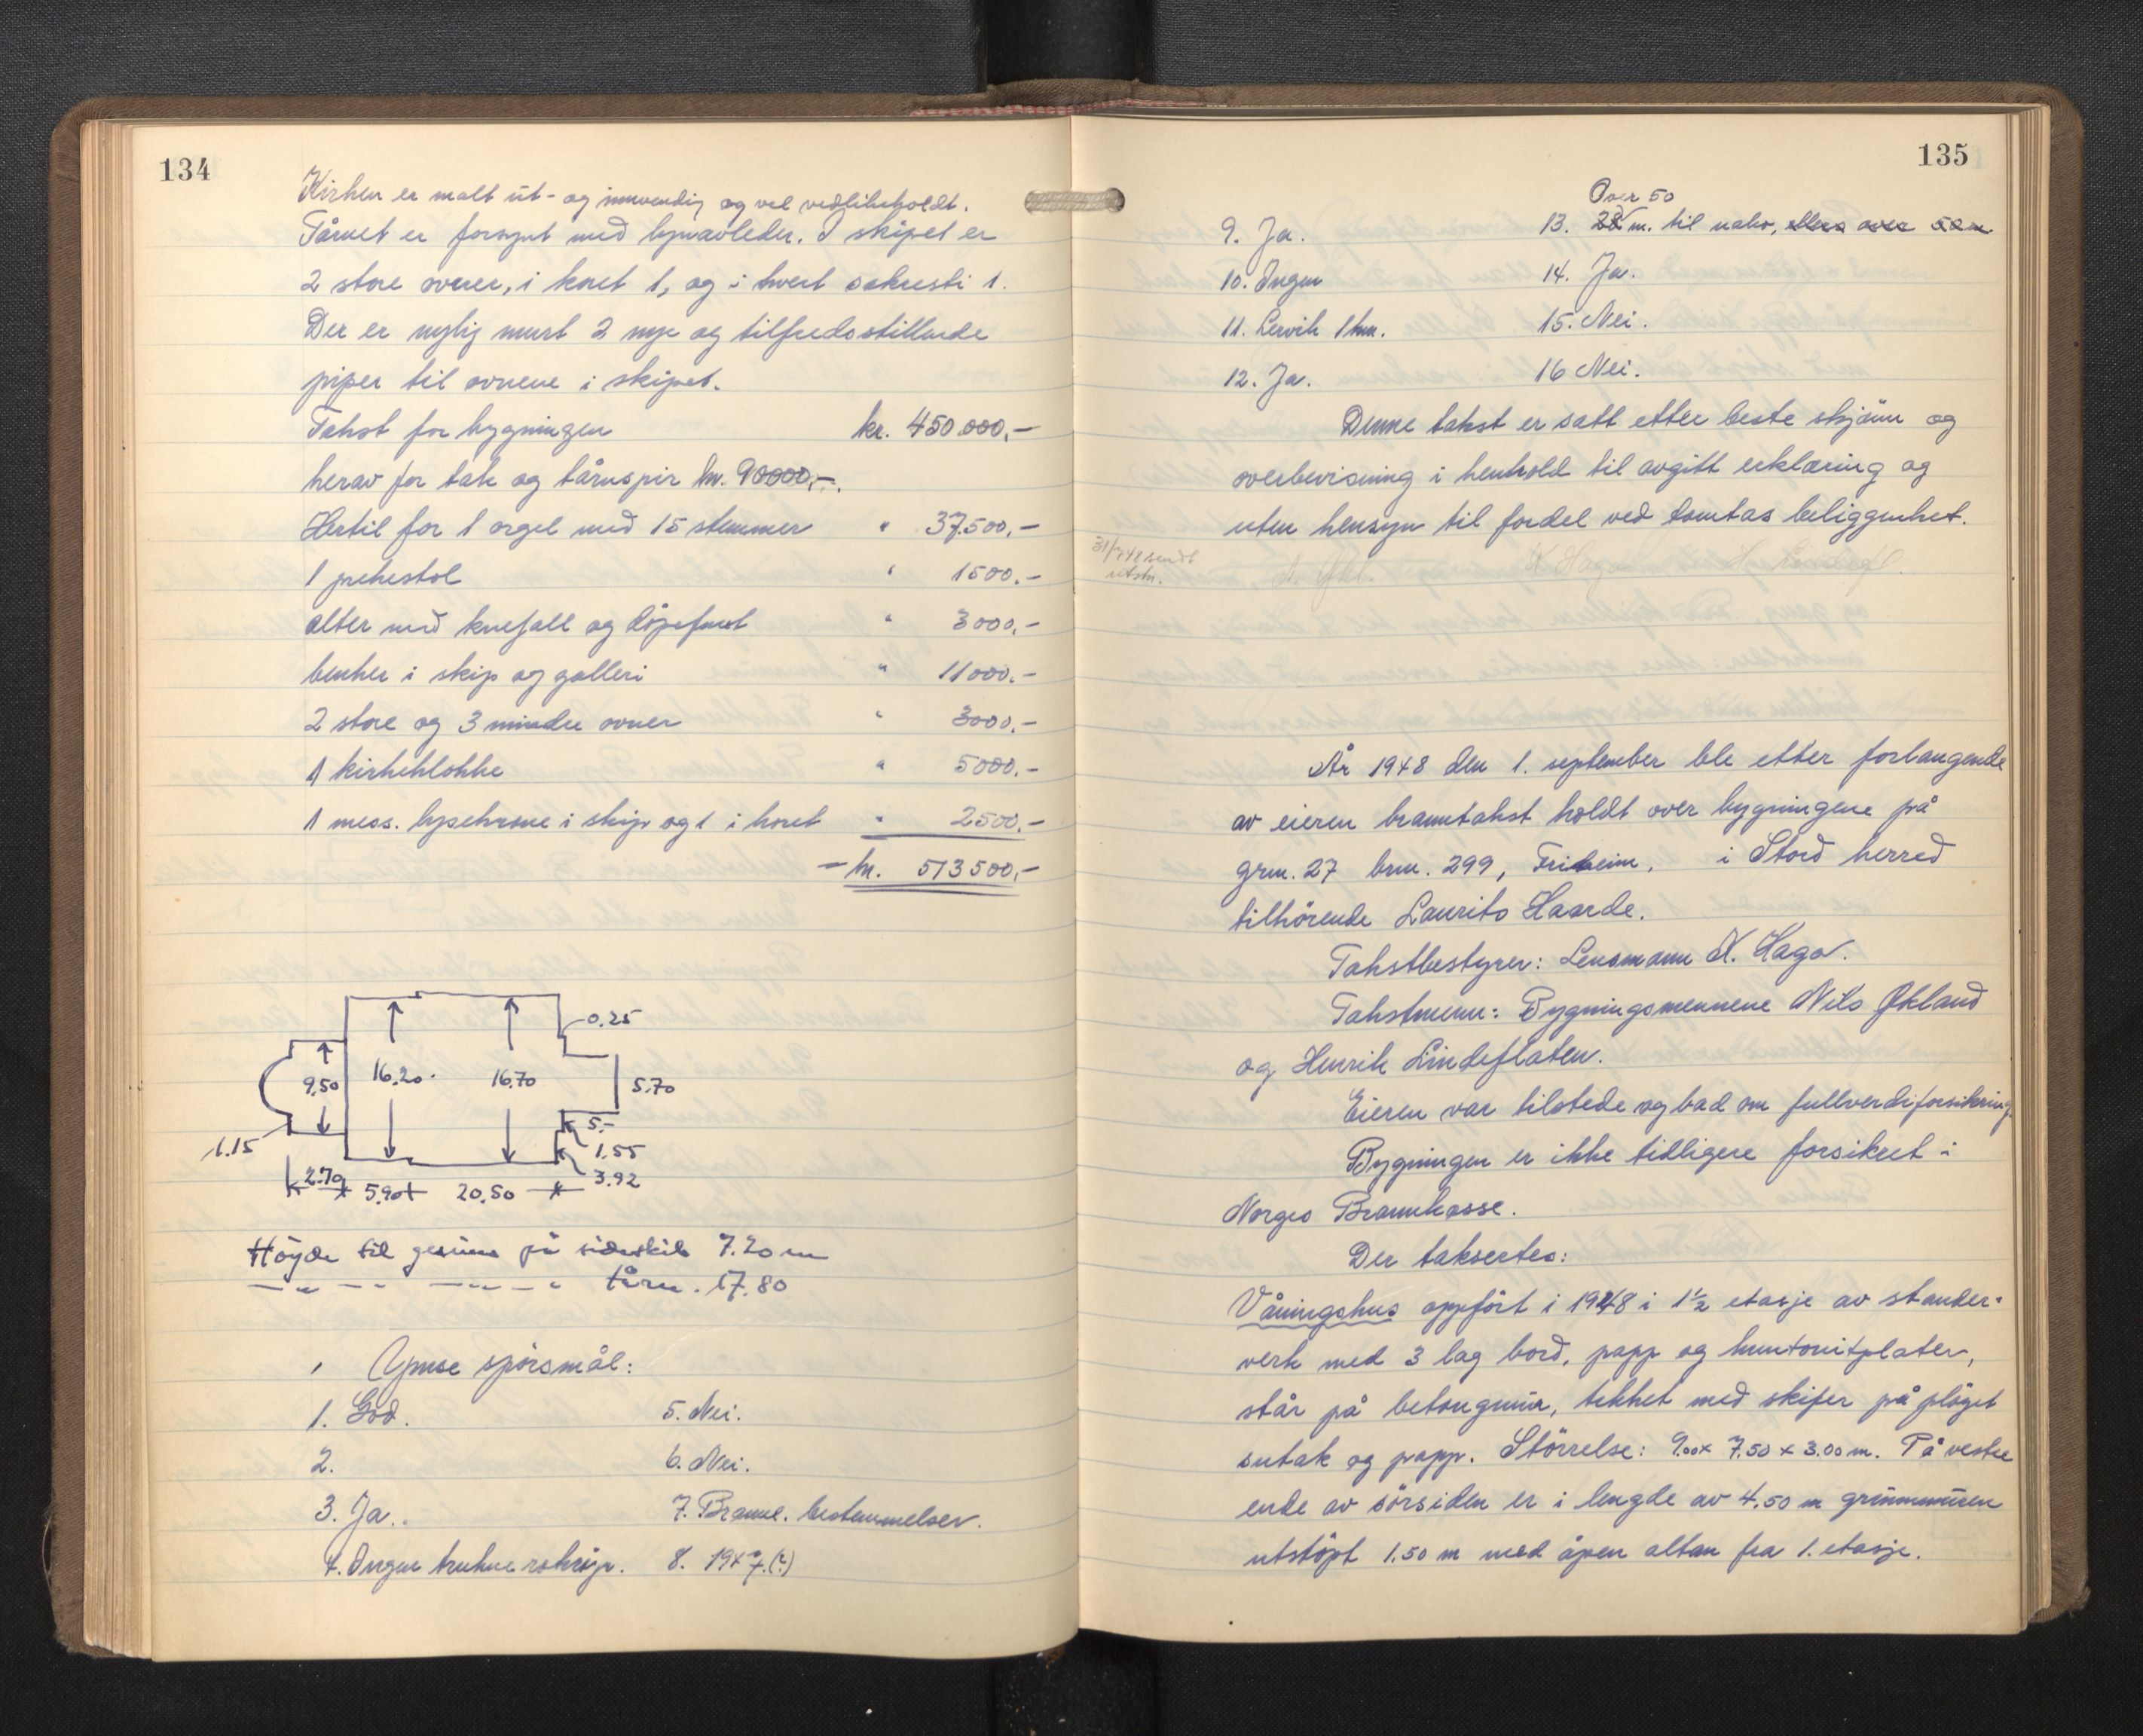 134
Kirken er malt ut- og innvendig og vel vedlikeholdt.
Tårnet er forsynt med lynavleder. I skipet er
2 store ovner, i koret 1, og i hvert sakresti 1.
Der er nylig murt 2 nye og tilfredsstillende
piper til ovnene i skipet.
Takst for bygningen kr. 450.000,-
herav for tak og tårnspir kr. 90000,-.
Hertil for 1 orgel med 15 stemmer " 37.500,-
1 prekestol " 1500.-
alter med knefall og döpefont " 3000,-
benker i skip og galleri " 11000.-
2 store og 3 mindre ovner " 3000,-
1 kirkeklokke " 5000,-
1 mess. lysekrone i skip og 1 i koret " 2500,-
- kr. 513500,-
0.25
9.50 16.20. 16.70 5.70
5.-
1.15 1.55
2.70 5.90 20.50 3.92
Höyde til gesims på sideskib 7.20 m
-"- -" -"- " tårn. 17.80
Ymse spörsmål:
1. God. 5. Nei.
2. 6. Nei.
3. Ja. 7. Brannl. bestemmelser.
4. Ingen 8. 1947.(?)
135
Over 50
9. Ja. 13. 28 m. til nabo, ellers over 50 m.
10. Ingen 14. Ja.
11. Lervik 1 km. 15. Nei.
12. Ja. 16 Nei.
Denne takst er satt etter beste skjönn og
overbevisning i henhold til avgitt erklæring og
uten hensyn til fordel ved tomtas beliggenhet.
sendt
utskr.
K Haga
År 1948 den 1. september ble etter forlangende
av eieren branntakst holdt over bygningene på
grn. 27 brn. 299, Friheim, i Stord herred
tilhörende Laurits Haarde.
Takstbestyrer: Lensmann K. Haga.
Takstmenn: Bygningsmennene Nils Økland
og Henrik Lindeflaten.
Eieren var tilstede og bad om fullverdiforsikring.
Bygningen er ikke tidligere forsikret i
Norges Brannkasse.
Der taksertes:
Våningshus oppfört i 1948 i 1½ etasje av stender-
verk med 3 lag bord, papp og huntonitplater,
står på betongmur, tekket med skifer på plöget
sutak og papp. Störrelse: 9.00 x 7.50 x 3.00 m. På vestre
ende av sörsiden er i lengde av 4.50 m grunnmuren
utstöpt 1.50 m med åpen altan fra 1. etasje.